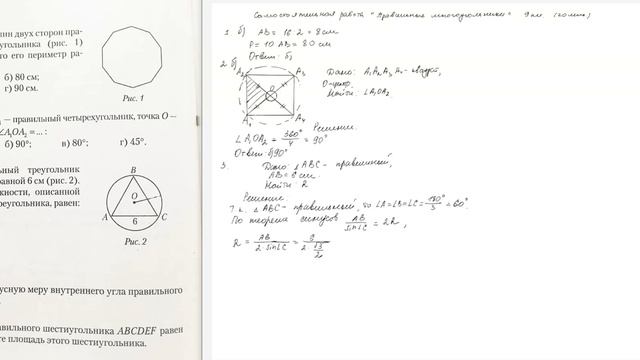 лин двух сторон пра-
угольника (рис. 1)
го его периметр ра-
б) 80 см;
г) 90 см.
Рис. 1
— правильный четырехугольник, точка O —
∠A₁OA₂ = ... :
б) 90°; в) 80°; г) 45°.
ьный треугольник
равной 6 см (рис. 2).
жности, описанной
реугольника, равен:
B
O
A 6 C
Рис. 2
усную меру внутреннего угла правильного
авильного шестиугольника ABCDEF равен
те площадь этого шестиугольника.
Самостоятельная работа "Правильные многоугольники" 9 кл. (20 мин)
1. б) AB = 16 : 2 = 8 см
P = 10 AB = 80 см
Ответ: б)
2. б)
A₂ A₃
O
A₁ A₄
Дано: A₁A₂A₃A₄ - квадрат,
O - центр.
Найти: ∠A₁OA₂
Решение.
∠A₁OA₂ = 360°/4 = 90°
Ответ: б) 90°
3. Дано: △ABC - правильный,
AB = 6 см.
Найти R
Решение.
Т.к. △ABC - правильный, то ∠A=∠B=∠C= 180°/3 = 60°
По теореме синусов AB/sin∠C = 2R,
R = AB/2·sin∠C =